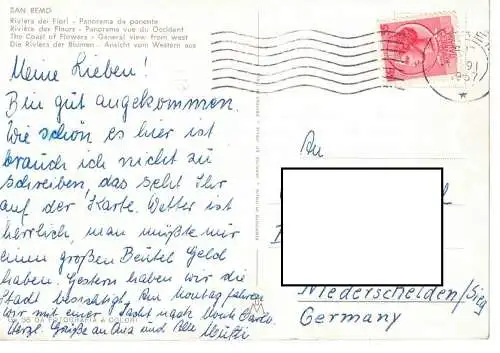 SAN REMO
Riviera dei Fiori - Panorama da ponente
Rivière des Fleurs - Panorama vue du Occident
The Coast of Flowers - General view from west
Die Riviera der Blumen - Ansicht vom Western aus
Meine Lieben!
Bin gut angekommen.
Wie schön es hier ist
brauch ich nicht zu
schreiben, das seht Ihr
auf der Karte. Wetter ist
herrlich, man müßte nur
einen großen Beutel Geld
haben. Gestern haben wir die
Stadt besichtigt, Am Montag fahren
wir mit einer Jacht nach Monte Carlo.
Herzl. Grüße an Oma und Alle Mutti
FOTOGRAFIA A COLORI
An
Niederschelden/Sieg
Germany
1967